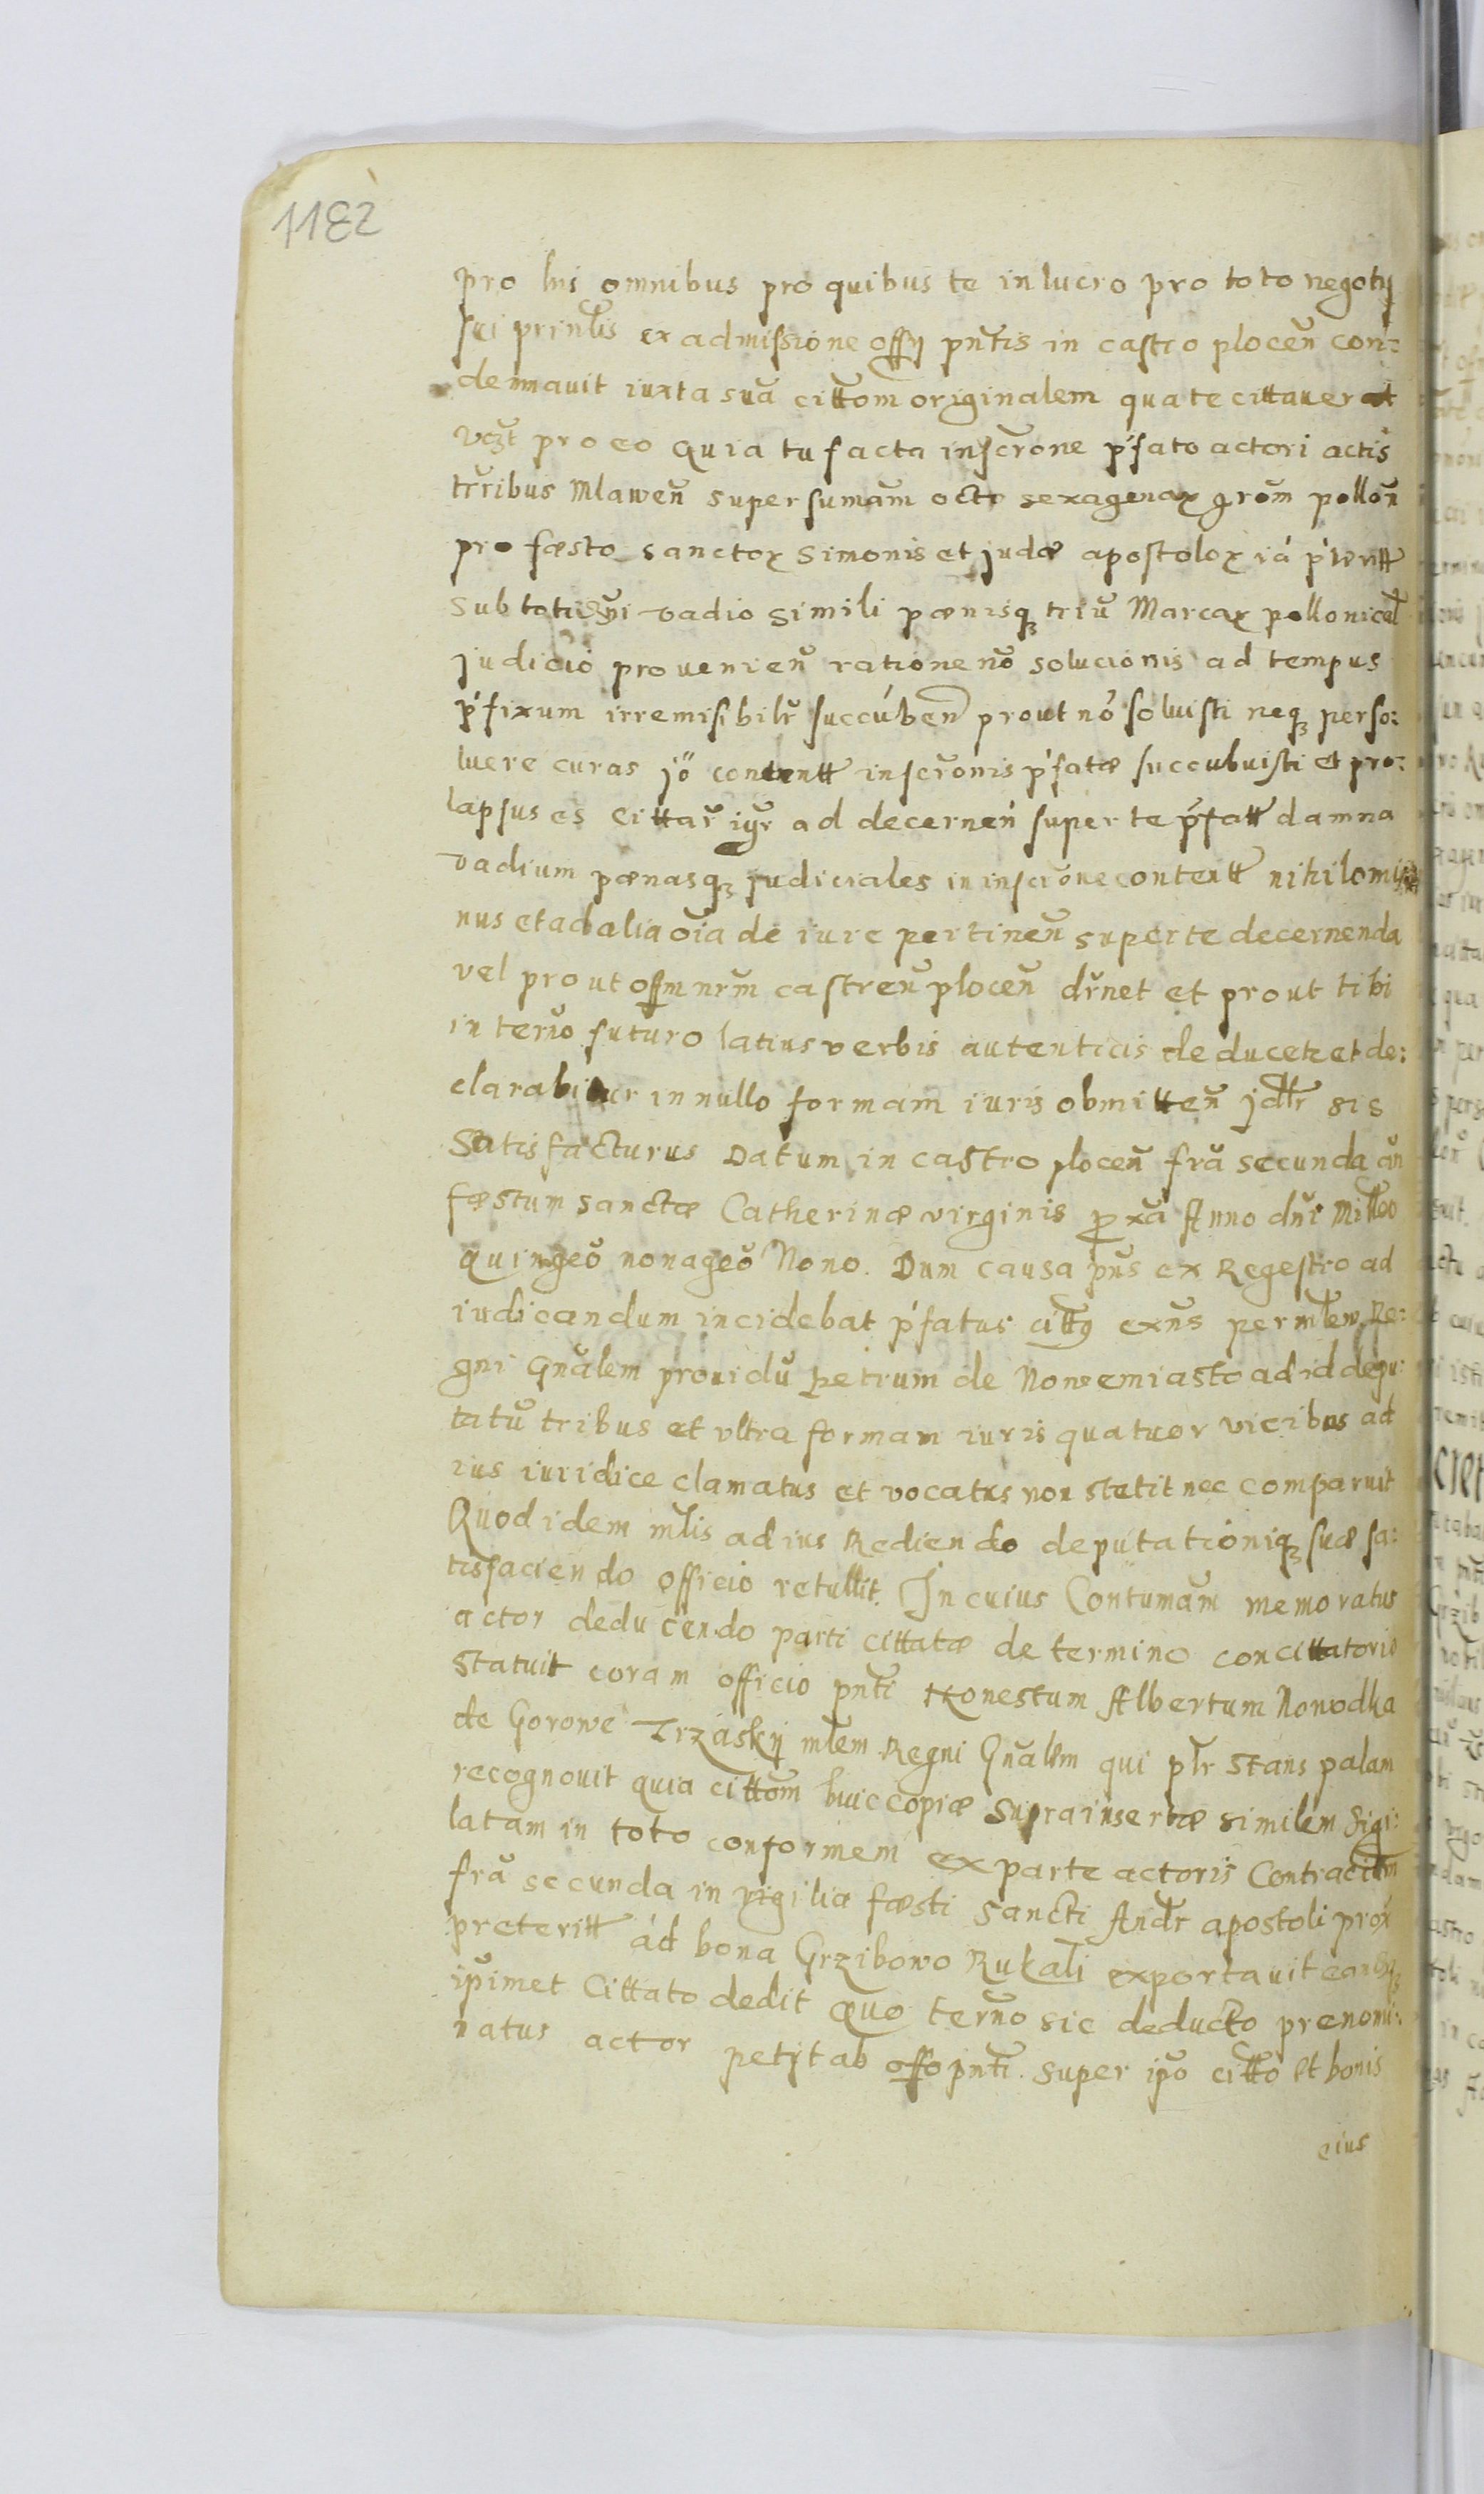 1182
pro his omnibus pro quibus te in lucro pro toto negotÿ
sui prinlis ex admissione offÿ pñtis in castro ploceñ con:
demnauit iuxta suã cittõm originalem qua te cittauerat
vczt pro eo quia tu facta inscrone p'fato actori actis
trribus Mlaweñ super sumam octo sexagenaꝝ grõm pollon̄
pro fæsto sanctoꝝ Simonis et judæ apostoloꝝ iá p'teritt
sub vadio simili pænisqꝫ triū Marcaꝝ pollonical
judicio provenieñ ratione nõ solucionis ad tempus
p'fixum irremisibilr succúbeñ prout nõ soluisti neqꝫ perso:
luere curas jõ contentt inscronis p'fatæ succubuisti et pro:
lapsus es Cittar̃ igr ad decerneń super te p'fatt damna
vadium pænasqꝫ judiciales in inscrone contentt nihilomi
nus et ad alia oĩa de iure pertineñ super te decernenda
vel prout offm nrm castreñ ploceñ drnet et prout tibi
in termo futuro latius verbis autenticis deducetr et de:
clarabitur in nullo formam iuris obmitteñ jdtr sis
Satisfacturus Datum in castro ploceñ frã secunda añ
fæstum sanctæ Catherinæ virginis ꝓxã Anno dñi Milleõ
quingeõ nonageõ Nono. Dum causa pñs ex Regestro ad
iudicandum incidebat p'fatus cittꝯ exñs per mlem Re:
gni Gñalem prouidũ Petrum de Nowemiasto ad id depu:
tatũ tribus et vltra formam iuris quatuor vicibus ad
ius iuridice clamatus et vocatus non stetit nec comparuit
Quod idem mlis ad ius Rediendo deputationiqꝫ suæ sa:
tisfaciendo officio retullit. In cuius Contumãm memoratus
actor deducendo parti cittatæ de termino concittatorio
statuit coram officio pñti Honestum Albertum Nowodka
de Gorowe Trzaskÿ mlem Regni Gñalem qui pltr stans palam
recognouit quia cittõm huic copiæ suprainsertæ similem Sigi:
latam in toto conformem ex parte actoris Contra cittm
frã secunda in vigilia fæsti Sancti Andr apostoli prox
preteritt ád bona Grzibowo Rukali exportauit eamqꝫ
ipimet Cittato dedit Quo termo sic deducto prenomi:
natus actor petÿt ab offo pñti super ipõ citto et bonis
eius